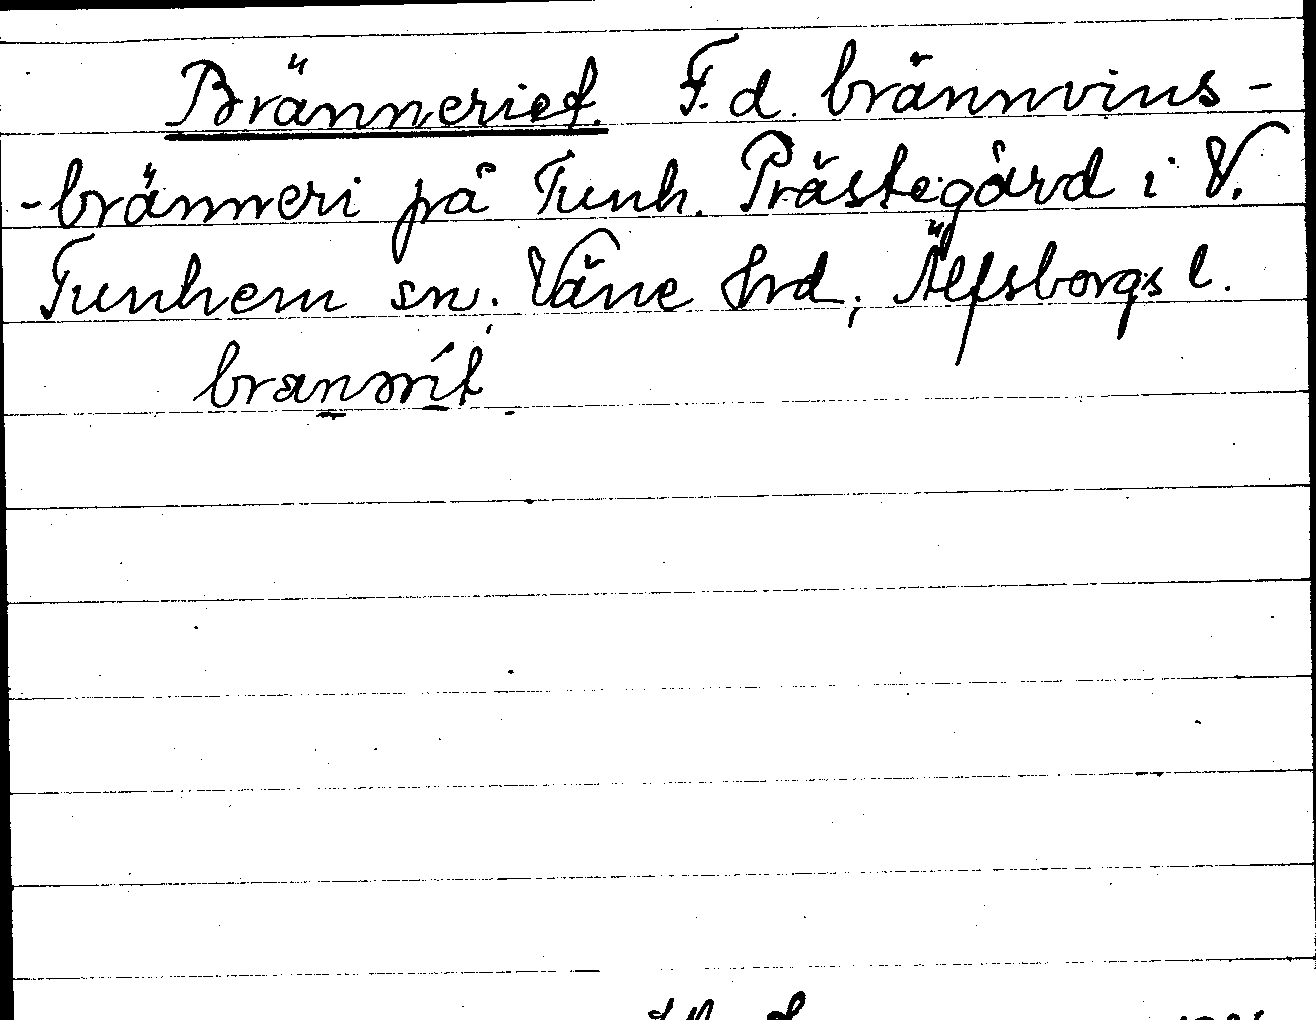 Bränneriet. F. d. brännvins-
-bränneri på Tunh. Prästegård i V.
Tunhem sn. Väne hrd, Älfsborgs l.